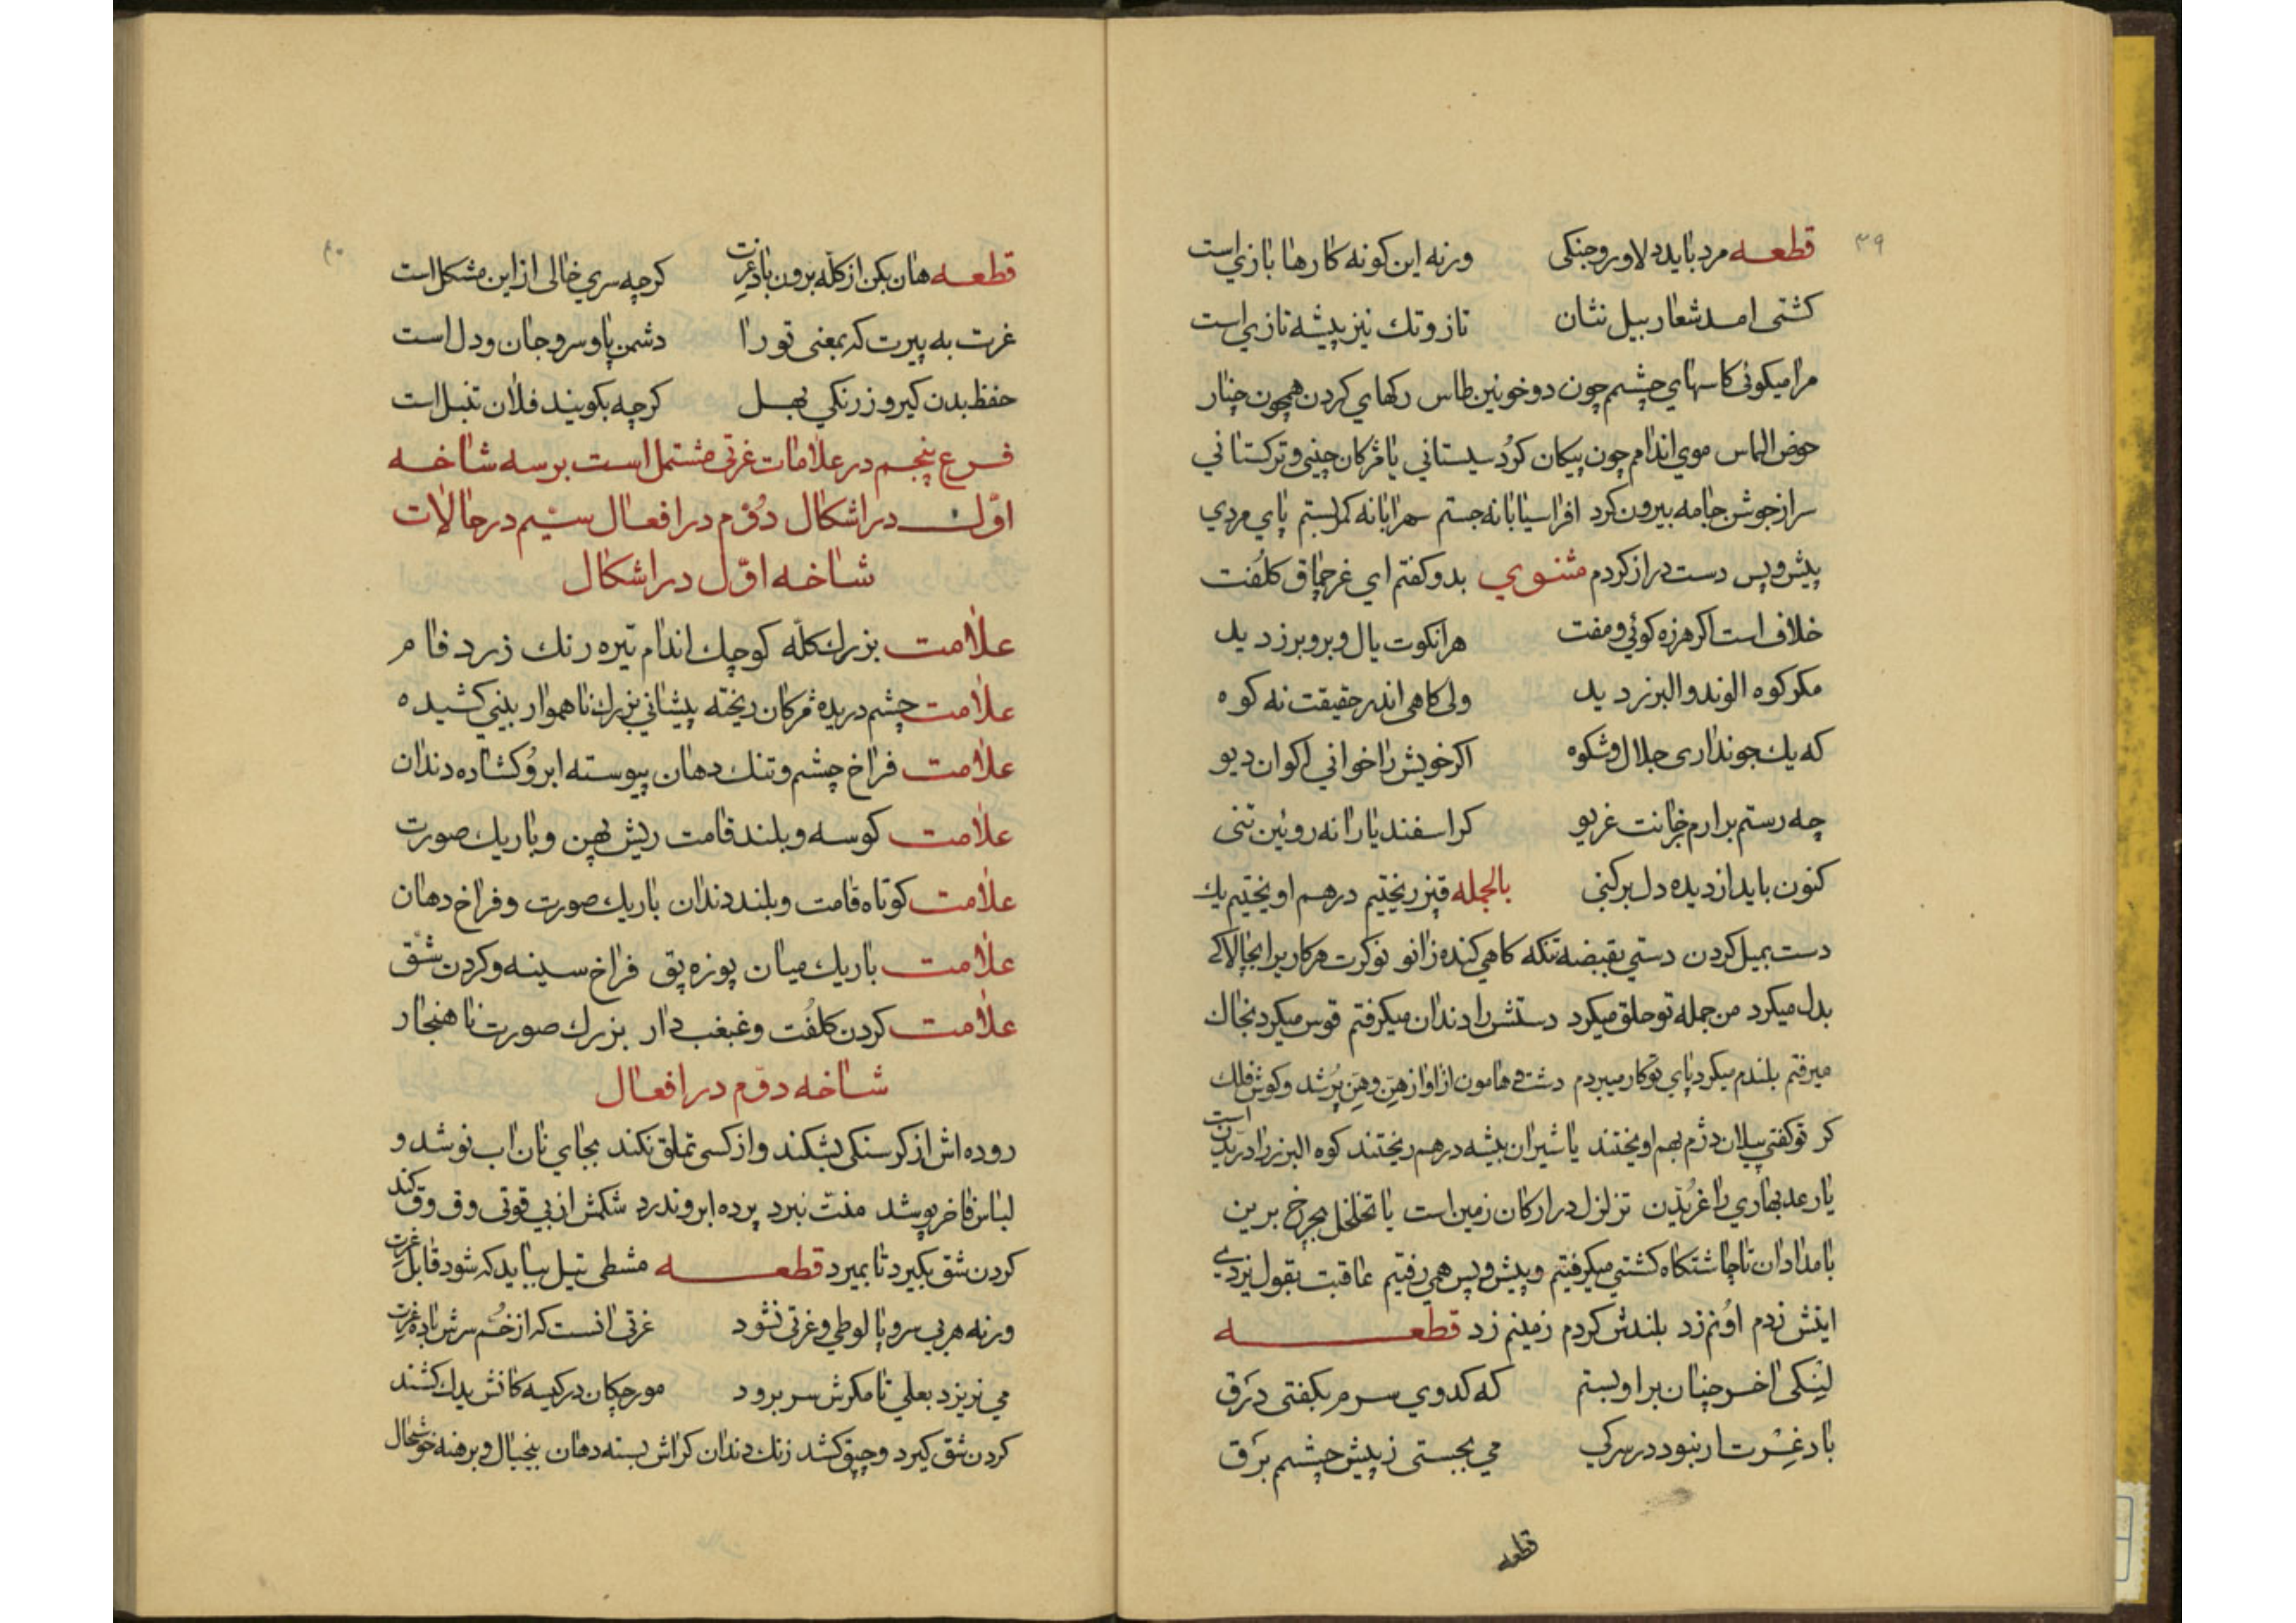 ۳۹
قطعه مرد باید دلاور و جنکی ورنه این کونه کارها بازی است
کشتی امد شعار بیل نشان تاز و تك نیز پیشه تازی است
مرا میکوئی کاسهای چشم چون دو خونین طاس رکهای کردن همچون چنار
حوض الماس موی اندام چون پیکان کرُد سیستانی یا مژکان چینی و ترکستانی
سر از جوشن جامه بیرون کرد افراسیابانه جستم سهرابانه کمر بستم پای مردی
پیش و پس دست دراز کردم مثنوی بدو کفتم ای غرچماق کلُفت
خلاف است اکر هرزه کوئی و مفت هرانکوت یال و بر و برز دید
مکر کوه الوند و البرز دید ولی کاهی اندر حقیقت نه کوه
که یك جو نداری جلال و شکوه اکر خویش را خوانی اکوان دیو
چه رستم برارم ز جانت غریو کر اسفندیارا نه روئین تنی
کنون باید از دیده دل بر کنی بالجمله قپز ریختیم درهم اویختیم یك
دست بمیل کردن دستی بقبضه تنکه کاهی کنده زانو نوکرت هر کار برا بجالاکی
بدل میکرد من جمله تو حلق میکرد دستش را دندان میکرفتم قوس میکرد بخاك
میرفتم بلندم میکرد پای توکار میبردم دشت و هامون از اواز هِن و هِن پُر شد و کوش فلك
کر تو کفتی پیلان دژم بهم اویختند یا شیران بیشه درهم ریختند کوه البرز را دریدن است
یا رعد بهاری را غریدن تزلزل در ارکان زمین است یا تخلخل بچرخ برین
بامدادان تا چاشتکاه کشتی میکرفتیم و پیش و پس همی رفتیم عاقبت بقول یزدی
اینش زدم اونم زد بلندش کردم زمینم زد قطعه
لینکی اخر چنان بر او بستم که کدوی سرم بکفتی دَرَق
باد غِرّت ار نبود در سرکی می بجستی ز پیش چشمم بَرَق
قطعه
۴۰
قطعه هان بکن از کلّه برون باد غرت کرچه سری خالی از این مشکل است
غرت به پیرت که بمعنی تو را دشمن پا و سر و جان و دل است
حفظ بدن کیر و زرنکی بهل کرچه بکویند فلان تنبل است
فرع پنجم در علامات غرتی مشتمل است بر سه شاخه
اوّل در اشکال دوّم در افعال سیّم در حالات
شاخه اوّل در اشکال
علامت بزرك کلّه کوچك اندام تیره رنك زرد فام
علامت چشم دریده مژکان ریخته پیشانی بزرك ناهموار بینی کشیده
علامت فراخ چشم و تنك دهان پیوسته ابرو کشاده دندان
علامت کوسه و بلند قامت ریش پهن و باریك صورت
علامت کوتاه قامت و بلند دندان باریك صورت و فراخ دهان
علامت باریك میان پوزه پق فراخ سینه و کردن شق
علامت کردن کلُفت و غبغب دار بزرك صورت ناهنجار
شاخه دوّم در افعال
روده اش از کرسنکی بشکند و از کسی تملق نکند بجای نان اب نوشد و
لباس فاخر پوشد منّت نبرد پرده ابرو ندرد شکمش از بی قوتی وق وق کند
کردن شق بکیرد تا بمیرد قطعه مشطی تپل بباید که شود قابل غرت
ورنه هر بی سر و پا لوطی و غرتی نشود غرتی انست که از خُم سرش باده غرت
می نریزد بعلی تا مکرش سر برود مورچکان در کیسه کانش یدك کشند
کردن شق کیرد و چپق کشد زنك دندان کراش بسته دهان بیخیال و برهنه خوشحال